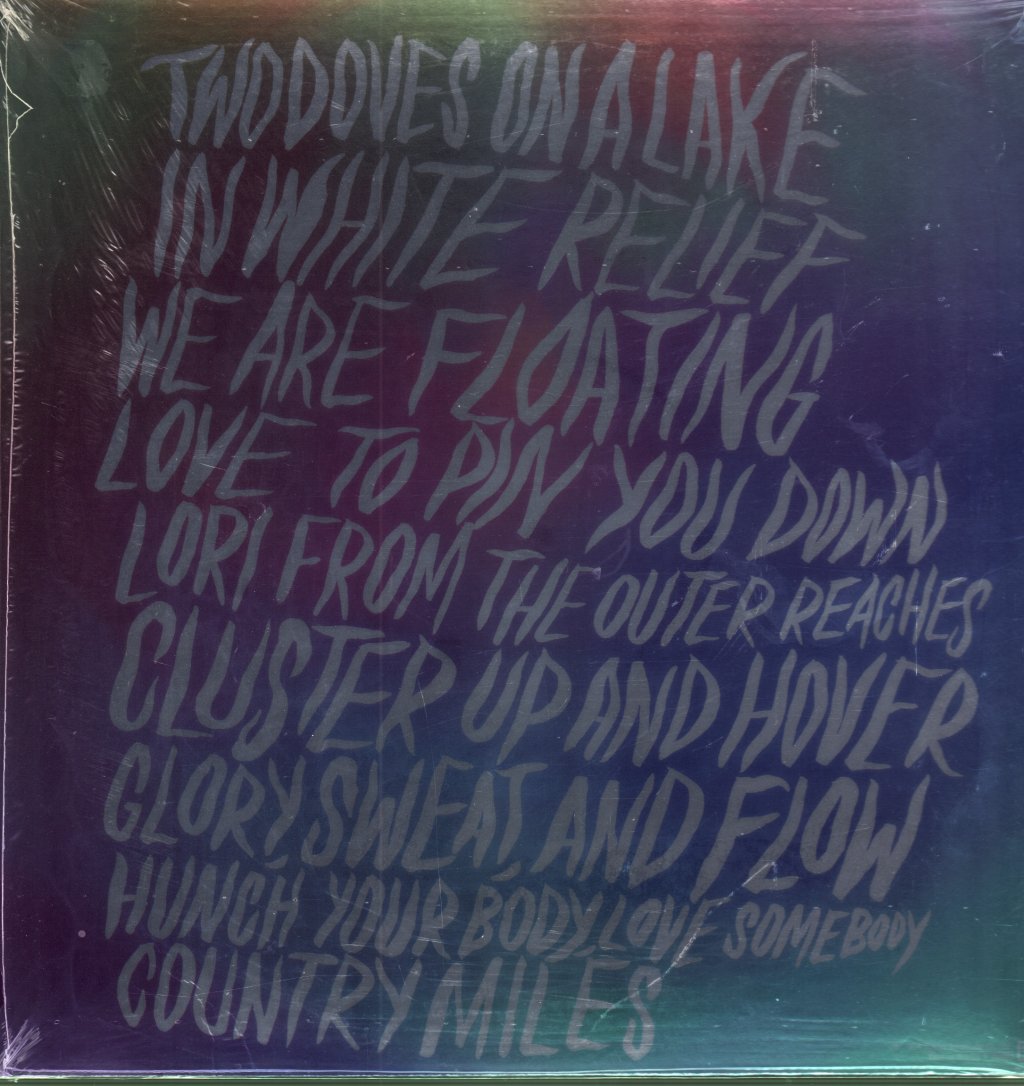 TWO DOVES ON A LAKE
IN WHITE RELIEF
WE ARE FLOATING
LOVE TO PIN YOU DOWN
LORI FROM THE OUTER REACHES
CLUSTER UP AND HOVER
GLORY, SWEAT, AND FLOW
HUNCH YOUR BODY, LOVE SOMEBODY
COUNTRY MILES